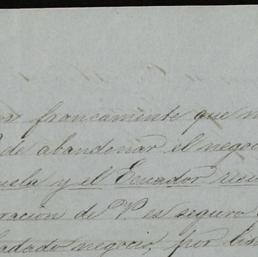 francamente que
de abandonar el negoc
uela y el Ecuador
ración de V es seguro
negocio, por